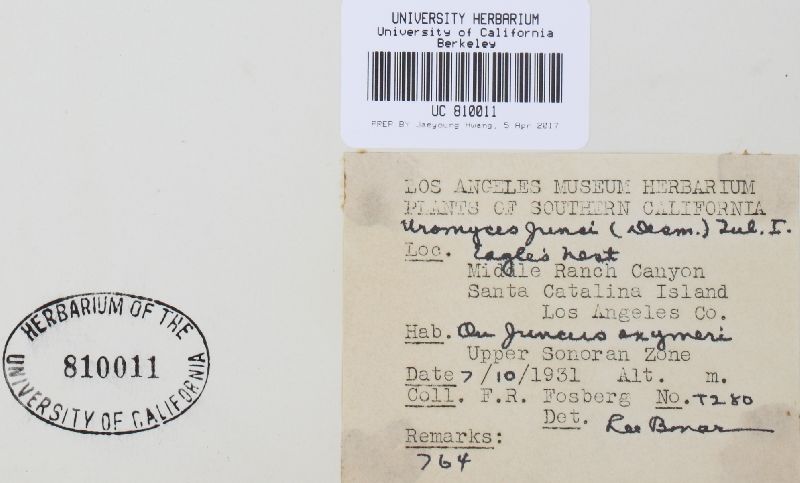 UNIVERSITY HERBARIUM
University of California
Berkeley
UC 810011
PREP BY Jaeyoung Hwang, 5 Apr 2017
LOS ANGELES MUSEUM HERBARIUM
PLANTS OF SOUTHERN CALIFORNIA
Uromyces Junci (Desm.) Tul. I.
Loc. Eagle's nest
Middle Ranch Canyon
Santa Catalina Island
Los Angeles Co.
Hab. On Juncus oxymeri
Upper Sonoran Zone
Date 7/10/1931 Alt. m.
Coll. F.R. Fosberg No. T280
Det. Lee Bonar
Remarks:
764
HERBARIUM OF THE
810011
UNIVERSITY OF CALIFORNIA